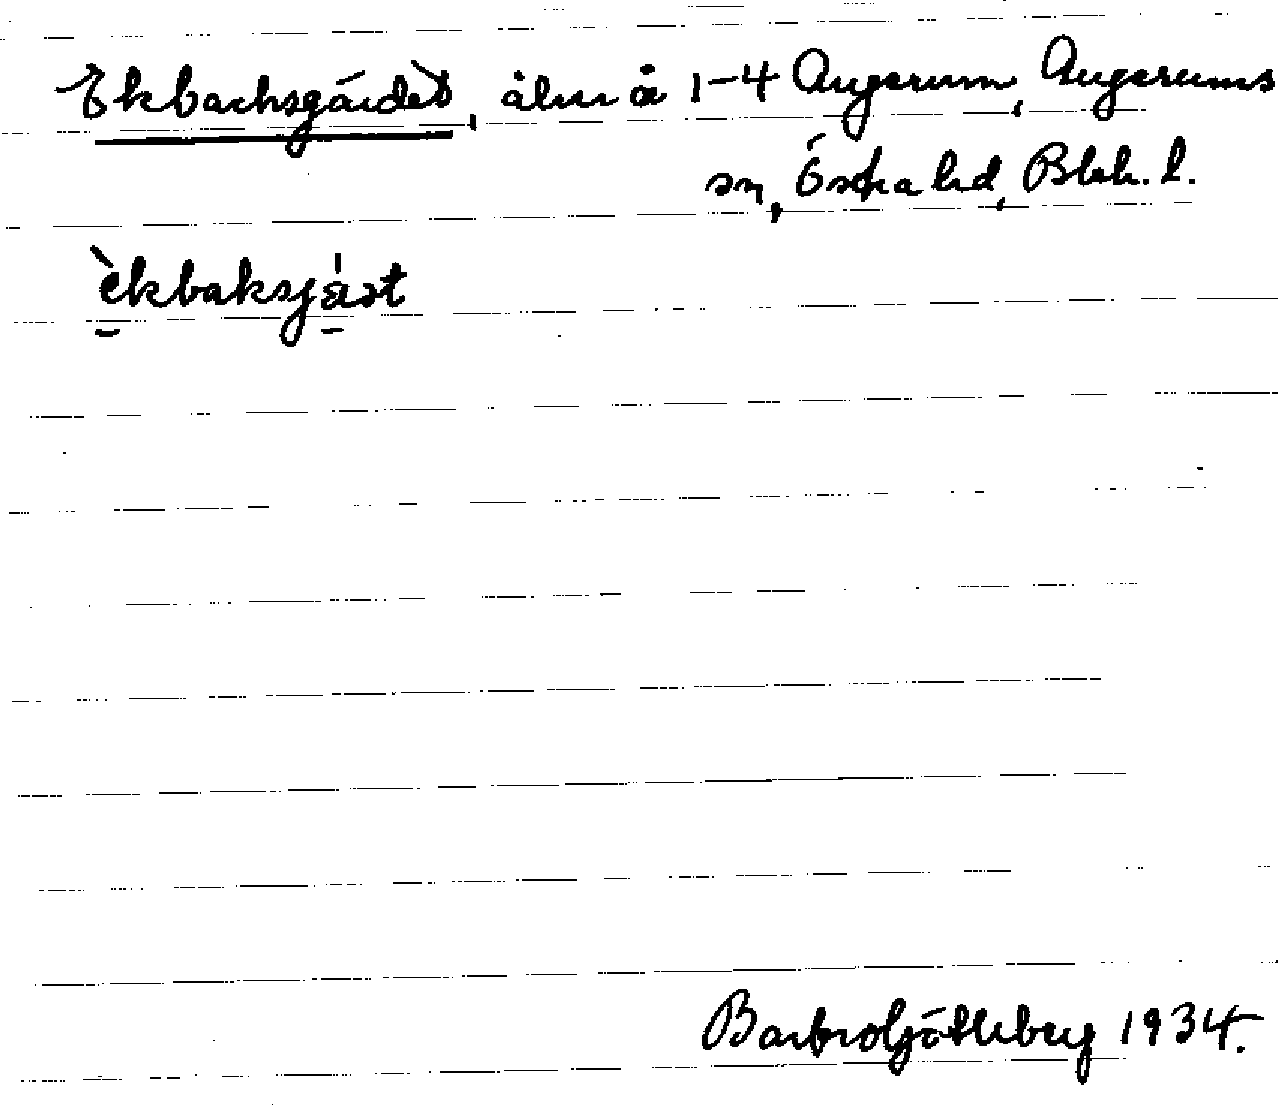 Ekbacksgärdet, åker å 1-4 Augerum, Augerums
sn, Östra hd, Blek. l.
èkbaksjæ̠ˈət
Barbro Götlberg 1934.